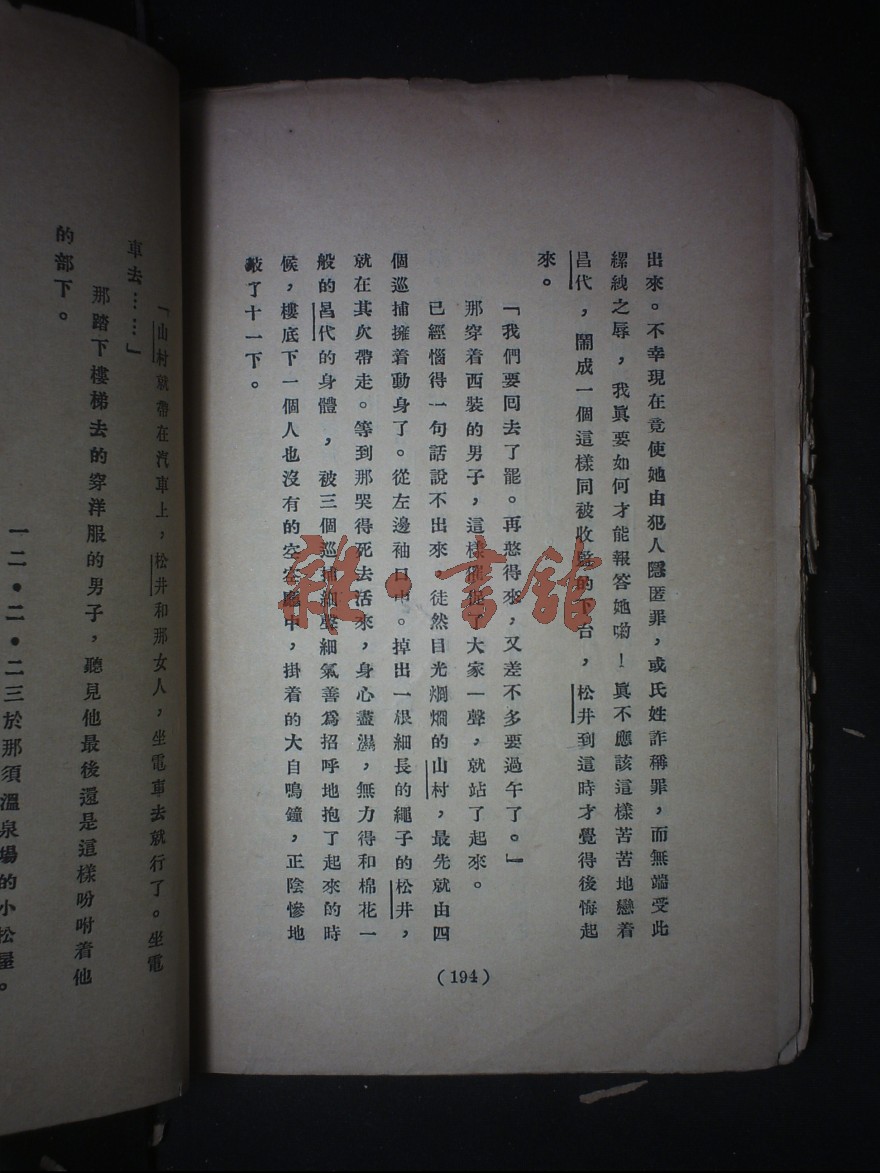 出來。不幸現在竟使她由犯人隱匿罪，或氏姓詐稱罪，而無端受此
縲絏之辱，我眞要如何才能報答她喲！眞不應該這樣苦苦地戀着
昌代，鬧成一個這樣同被收監的下台，松井到這時才覺得後悔起
來。
「我們要回去了罷。再憨得來，又差不多要過午了。」
那穿着西裝的男子，這樣催促了大家一聲，就站了起來。
已經惱得一句話說不出來，徒然目光烱烱的山村，最先就由四
個巡捕擁着動身了。從左邊袖口中。掉出一根細長的繩子的松井，
就在其次帶走。等到那哭得死去活來，身心盡瀉，無力得和棉花一
般的昌代的身體，被三個巡捕細聲細氣善爲招呼地抱了起來的時
候，樓底下一個人也沒有的空客廳中，掛着的大自鳴鐘，正陰慘地
敲了十一下。
(194)
「山村就帶在汽車上，松井和那女人，坐電車去就行了。坐電
車去……」
那踏下樓梯去的穿洋服的男子，聽見他最後還是這樣吩咐着他
的部下。
一二・二・二三於那須溫泉場的小松屋。
雜・書館